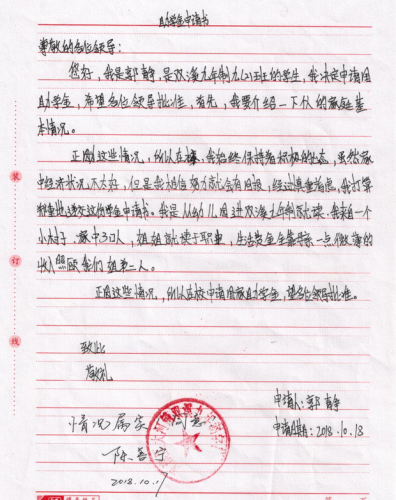 助学金申请书
尊敬的各位领导:
您好,我是郭静,是双溪九年制九(2)班的学生,我决定申请国
助学金,希望各位领导批准,首先,我要介绍一下我的家庭基
本情况。
正因这些情况,所以在校,我始终保持着积极的心态,虽然家
中经济状况不太好,但是我相信努力就会有回报,经过慎重考虑,我打算
郑重地递交这份学金申请书。我是从幼儿园进双溪九年制就读,我来自一个
小村子,家中3口人,姐姐就读于职业,生活费全靠一点微薄的
收入照顾我们姐弟二人。
正因这些情况,所以在校申请国家助学金,望各位领导批准。
装
订
线
致此
敬礼
申请人:郭静
申请日期:2018.10.13
情况属实 同意
陈善宁
2018.10.1